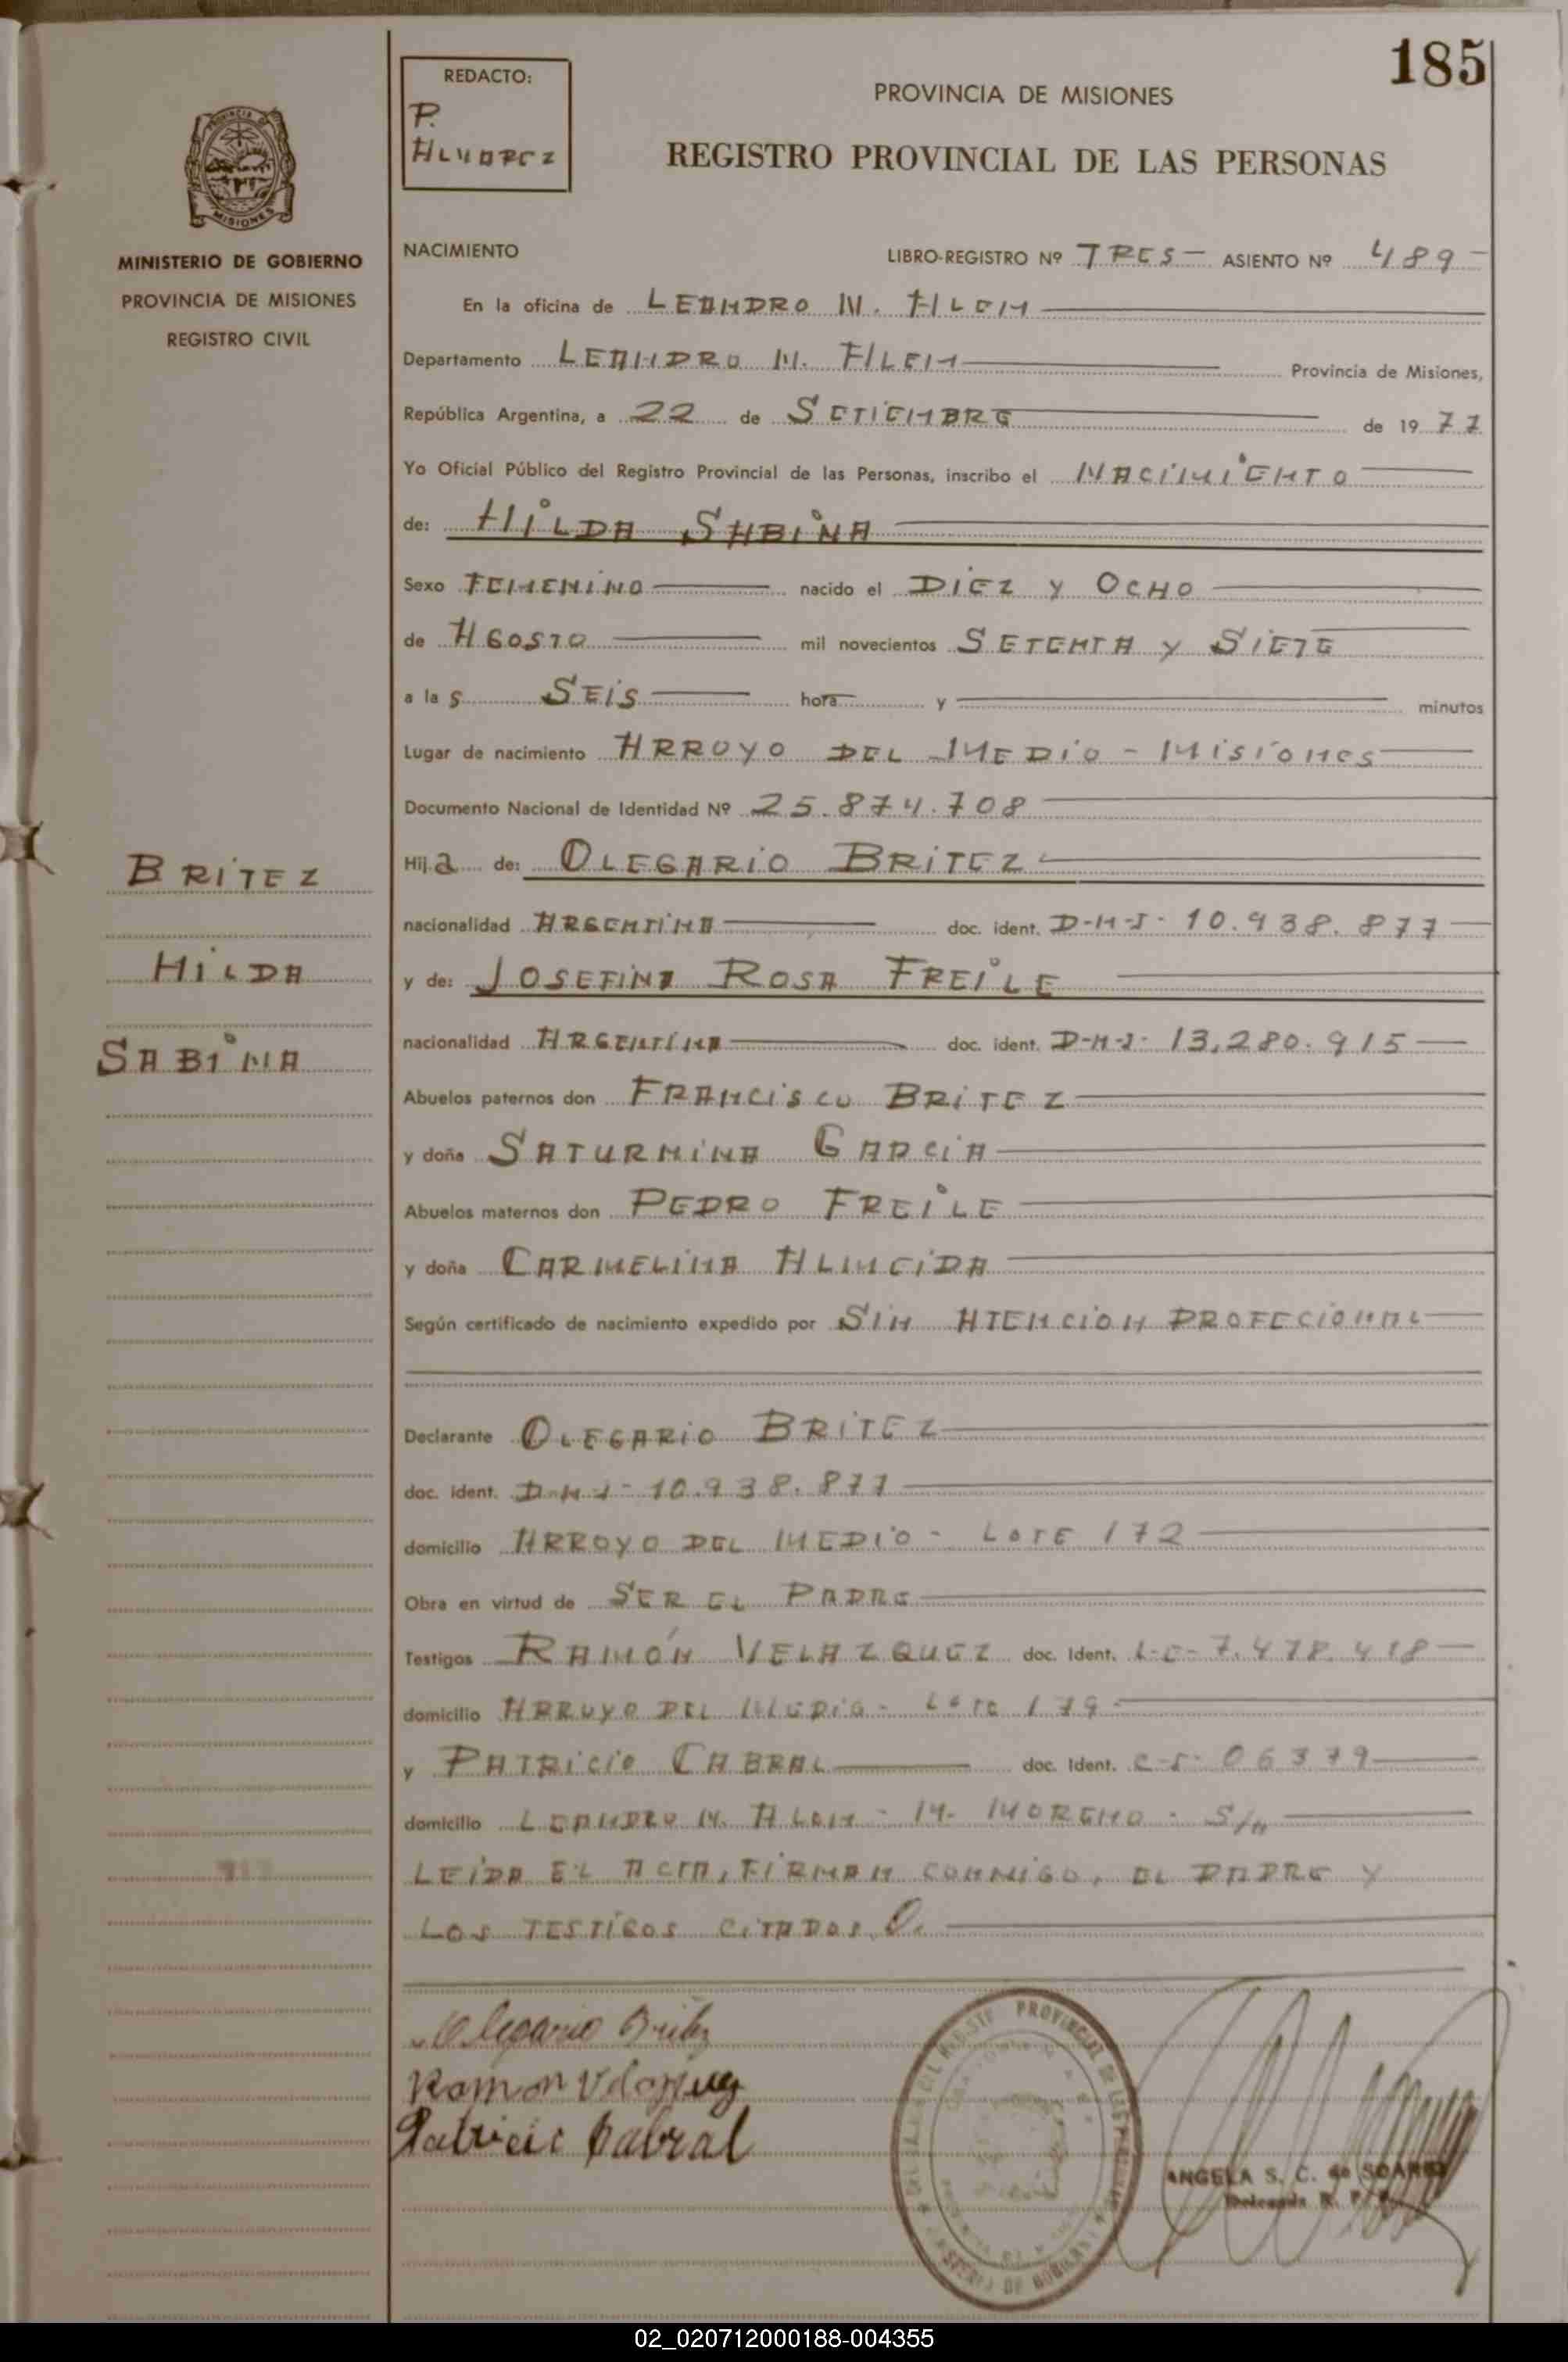 185
REDACTO:
P.
ALVAREZ
PROVINCIA DE MISIONES
REGISTRO PROVINCIAL DE LAS PERSONAS
MISIONES
MINISTERIO DE GOBIERNO
PROVINCIA DE MISIONES
REGISTRO CIVIL
NACIMIENTO
LIBRO-REGISTRO Nº TRES — ASIENTO Nº 489 —
En la oficina de LEANDRO N. ALEM
Departamento LEANDRO N. ALEM Provincia de Misiones,
República Argentina, a 22 de SETIEMBRE de 1977
Yo Oficial Público del Registro Provincial de las Personas, inscribo el NACIMIENTO
de: HILDA SABINA
Sexo FEMENINO nacido el DIEZ Y OCHO
de AGOSTO mil novecientos SETENTA Y SIETE
a las SEIS hora y minutos
Lugar de nacimiento ARROYO DEL MEDIO - MISIONES
Documento Nacional de Identidad Nº 25.874.708
BRITEZ
HILDA
SABINA
Hija de: OLEGARIO BRITEZ
nacionalidad ARGENTINA doc. ident. D-N-I- 10.938.877
y de: JOSEFINA ROSA FREILE
nacionalidad ARGENTINA doc. ident. D-N-I- 13.280.915
Abuelos paternos don FRANCISCO BRITEZ
y doña SATURNINA GARCIA
Abuelos maternos don PEDRO FREILE
y doña CARMELINA ALMEIDA
Según certificado de nacimiento expedido por SIN ATENCION PROFECIONAL
Declarante OLEGARIO BRITEZ
doc. ident. D-N-I- 10.938.877
domicilio ARROYO DEL MEDIO - LOTE 172
Obra en virtud de SER EL PADRE
Testigos RAMÓN VELAZQUEZ doc. Ident. L-E- 7.478.418
domicilio ARROYO DEL MEDIO - LOTE 179
y PATRICIO CABRAL doc. Ident. C-I- 06379
domicilio LEANDRO N. ALEM - M. MORENO - S/N
LEIDA EL ACTA, FIRMAN CONMIGO, EL PADRE Y
LOS TESTIGOS CITADOS.
Olegario Britez
Ramon Velazquez
Patricio Cabral
ANGELA S. C. de SOAREZ
Delegada R. P. P.
02_020712000188-004355